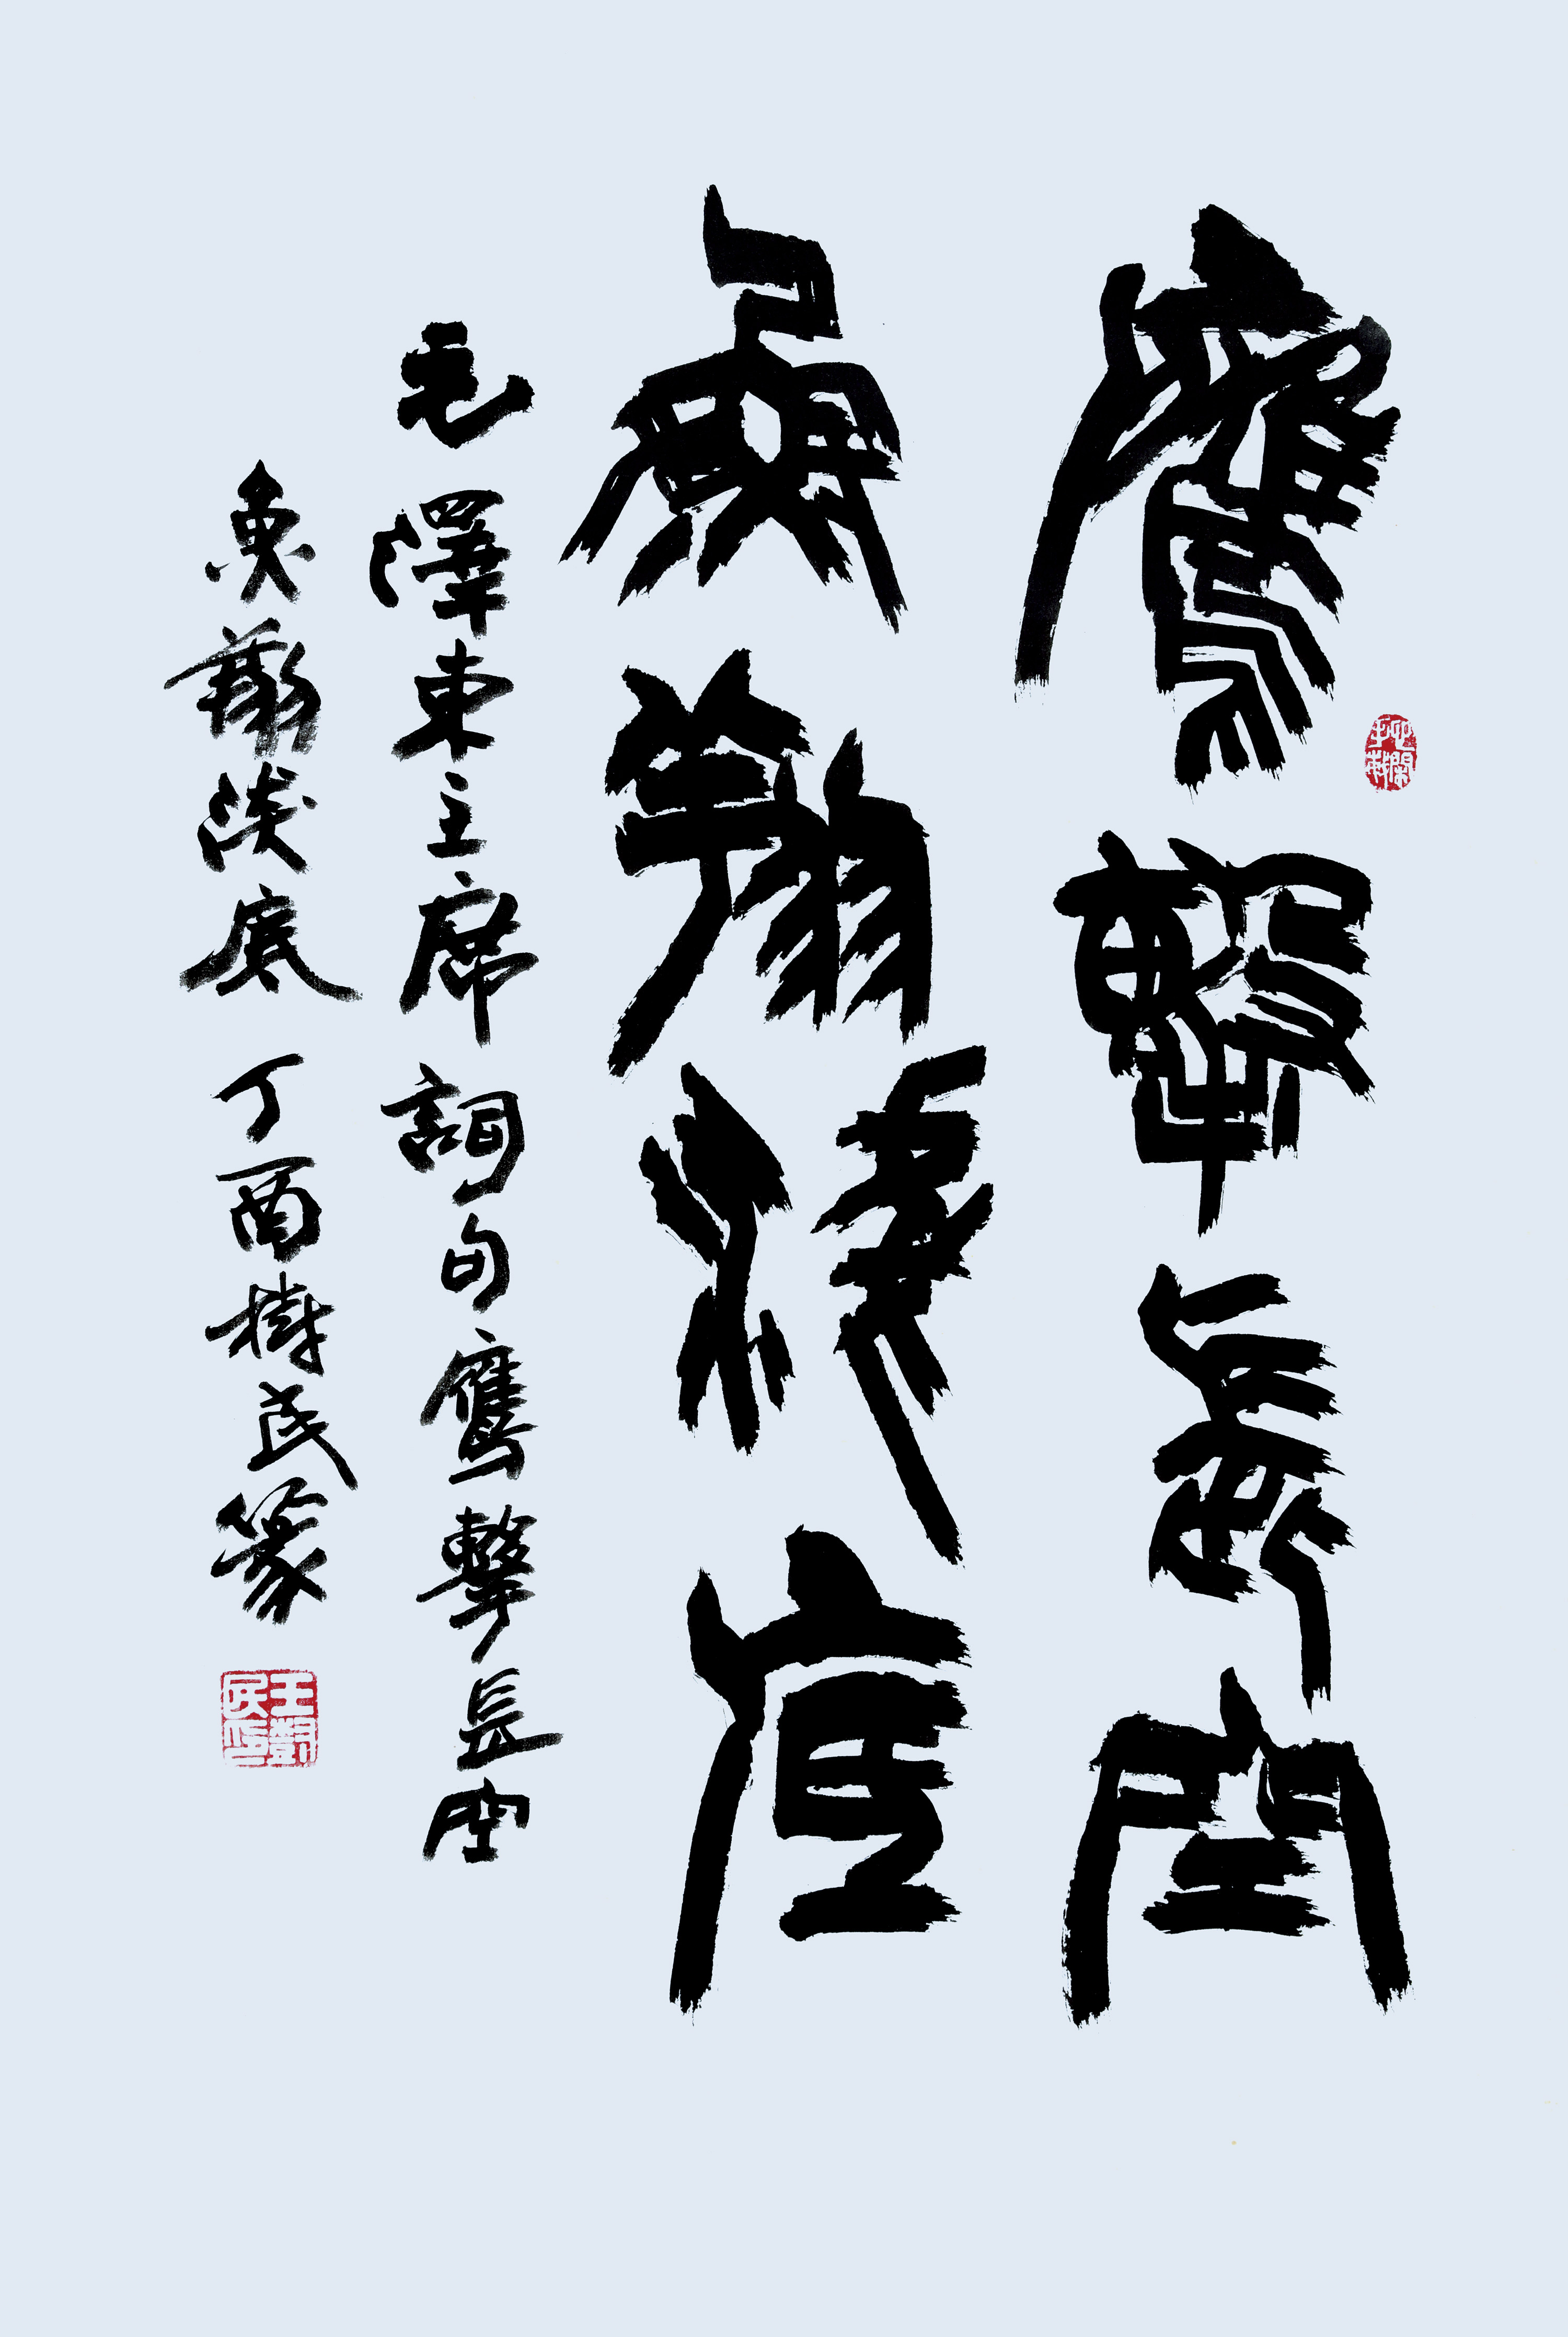 鷹擊長空
魚翔淺底
毛澤東主席詞句鷹擊長空
魚翔淺底 丁酉樹民篆
王樹民印